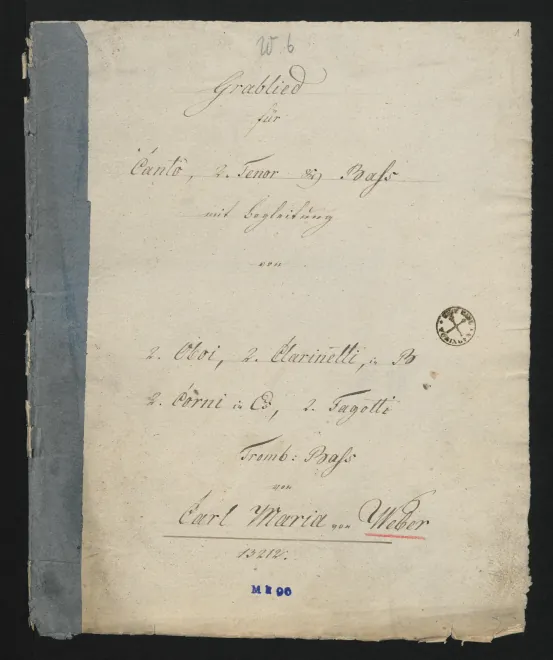 W 6
1
Grablied
für
Canto, 2. Tenor & Bass
mit Begleitung
von
2. Oboi, 2. Clarinetti, in B
2. Corni in Es, 2. Fagotti
Tromb: Bass
von
Carl Maria von Weber
13212.
M E 96